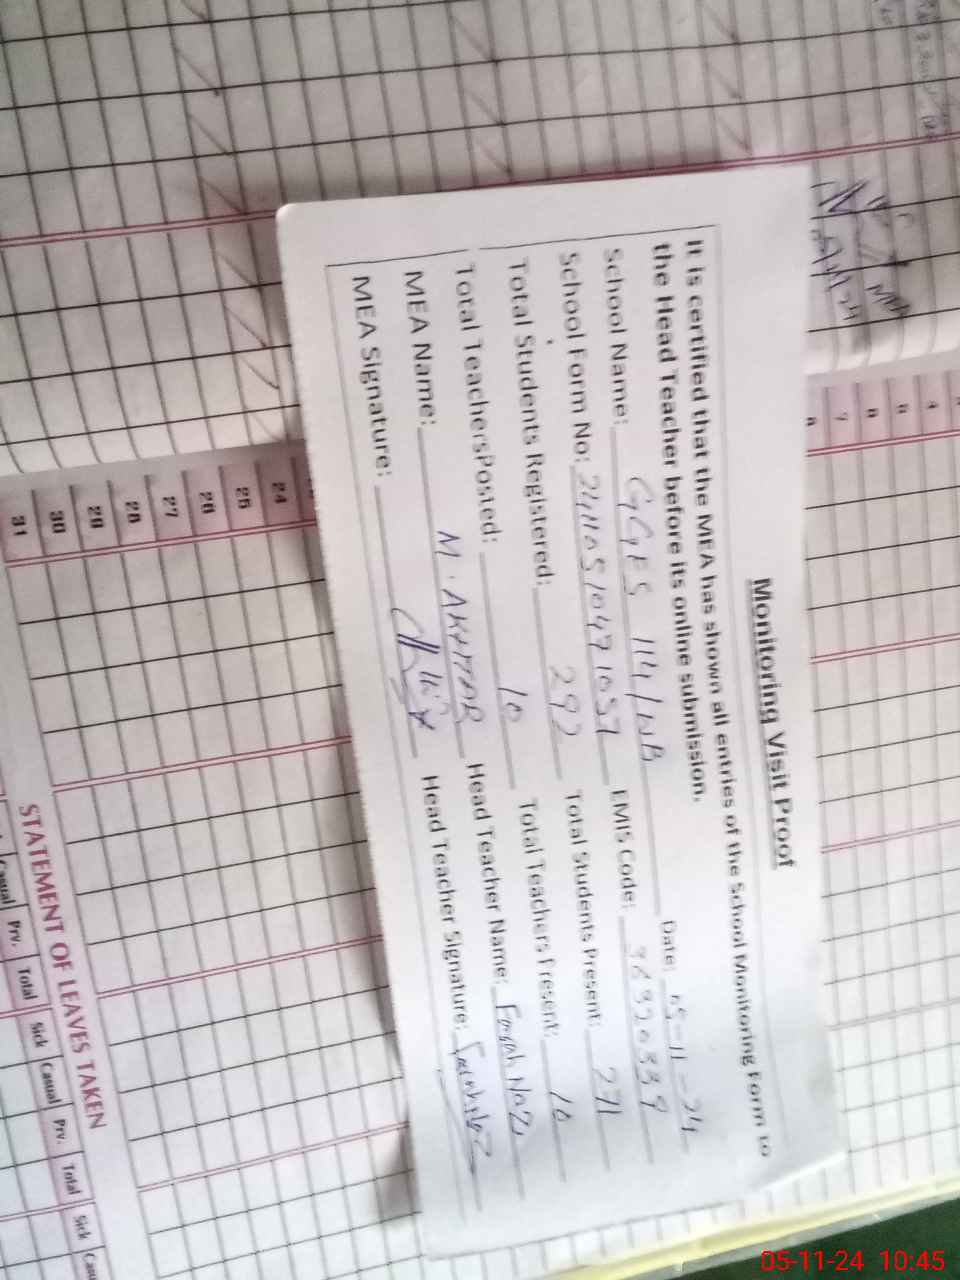 Monitoring Visit Proof
It is certified that the MEA has shown all entries of the School Monitoring Form to
the Head Teacher before its online submission.
Date: 05-11-24
School Name: GGES 114/WB
School Form No: 24110510471057 EMIS Code:
Total Students Registered: 292 Total Students Present: 271
Total Teachers Posted: 10 Total Teachers Present: 10
MEA Name: M. AKHTAR Head Teacher Name: Farah Naz
MEA Signature: Head Teacher Signature:
24
25
26
27
28
29
30
31
STATEMENT OF LEAVES TAKEN
Casual Prv. Total Sick Casual Prv. Total Sick
05-11-24 10:45